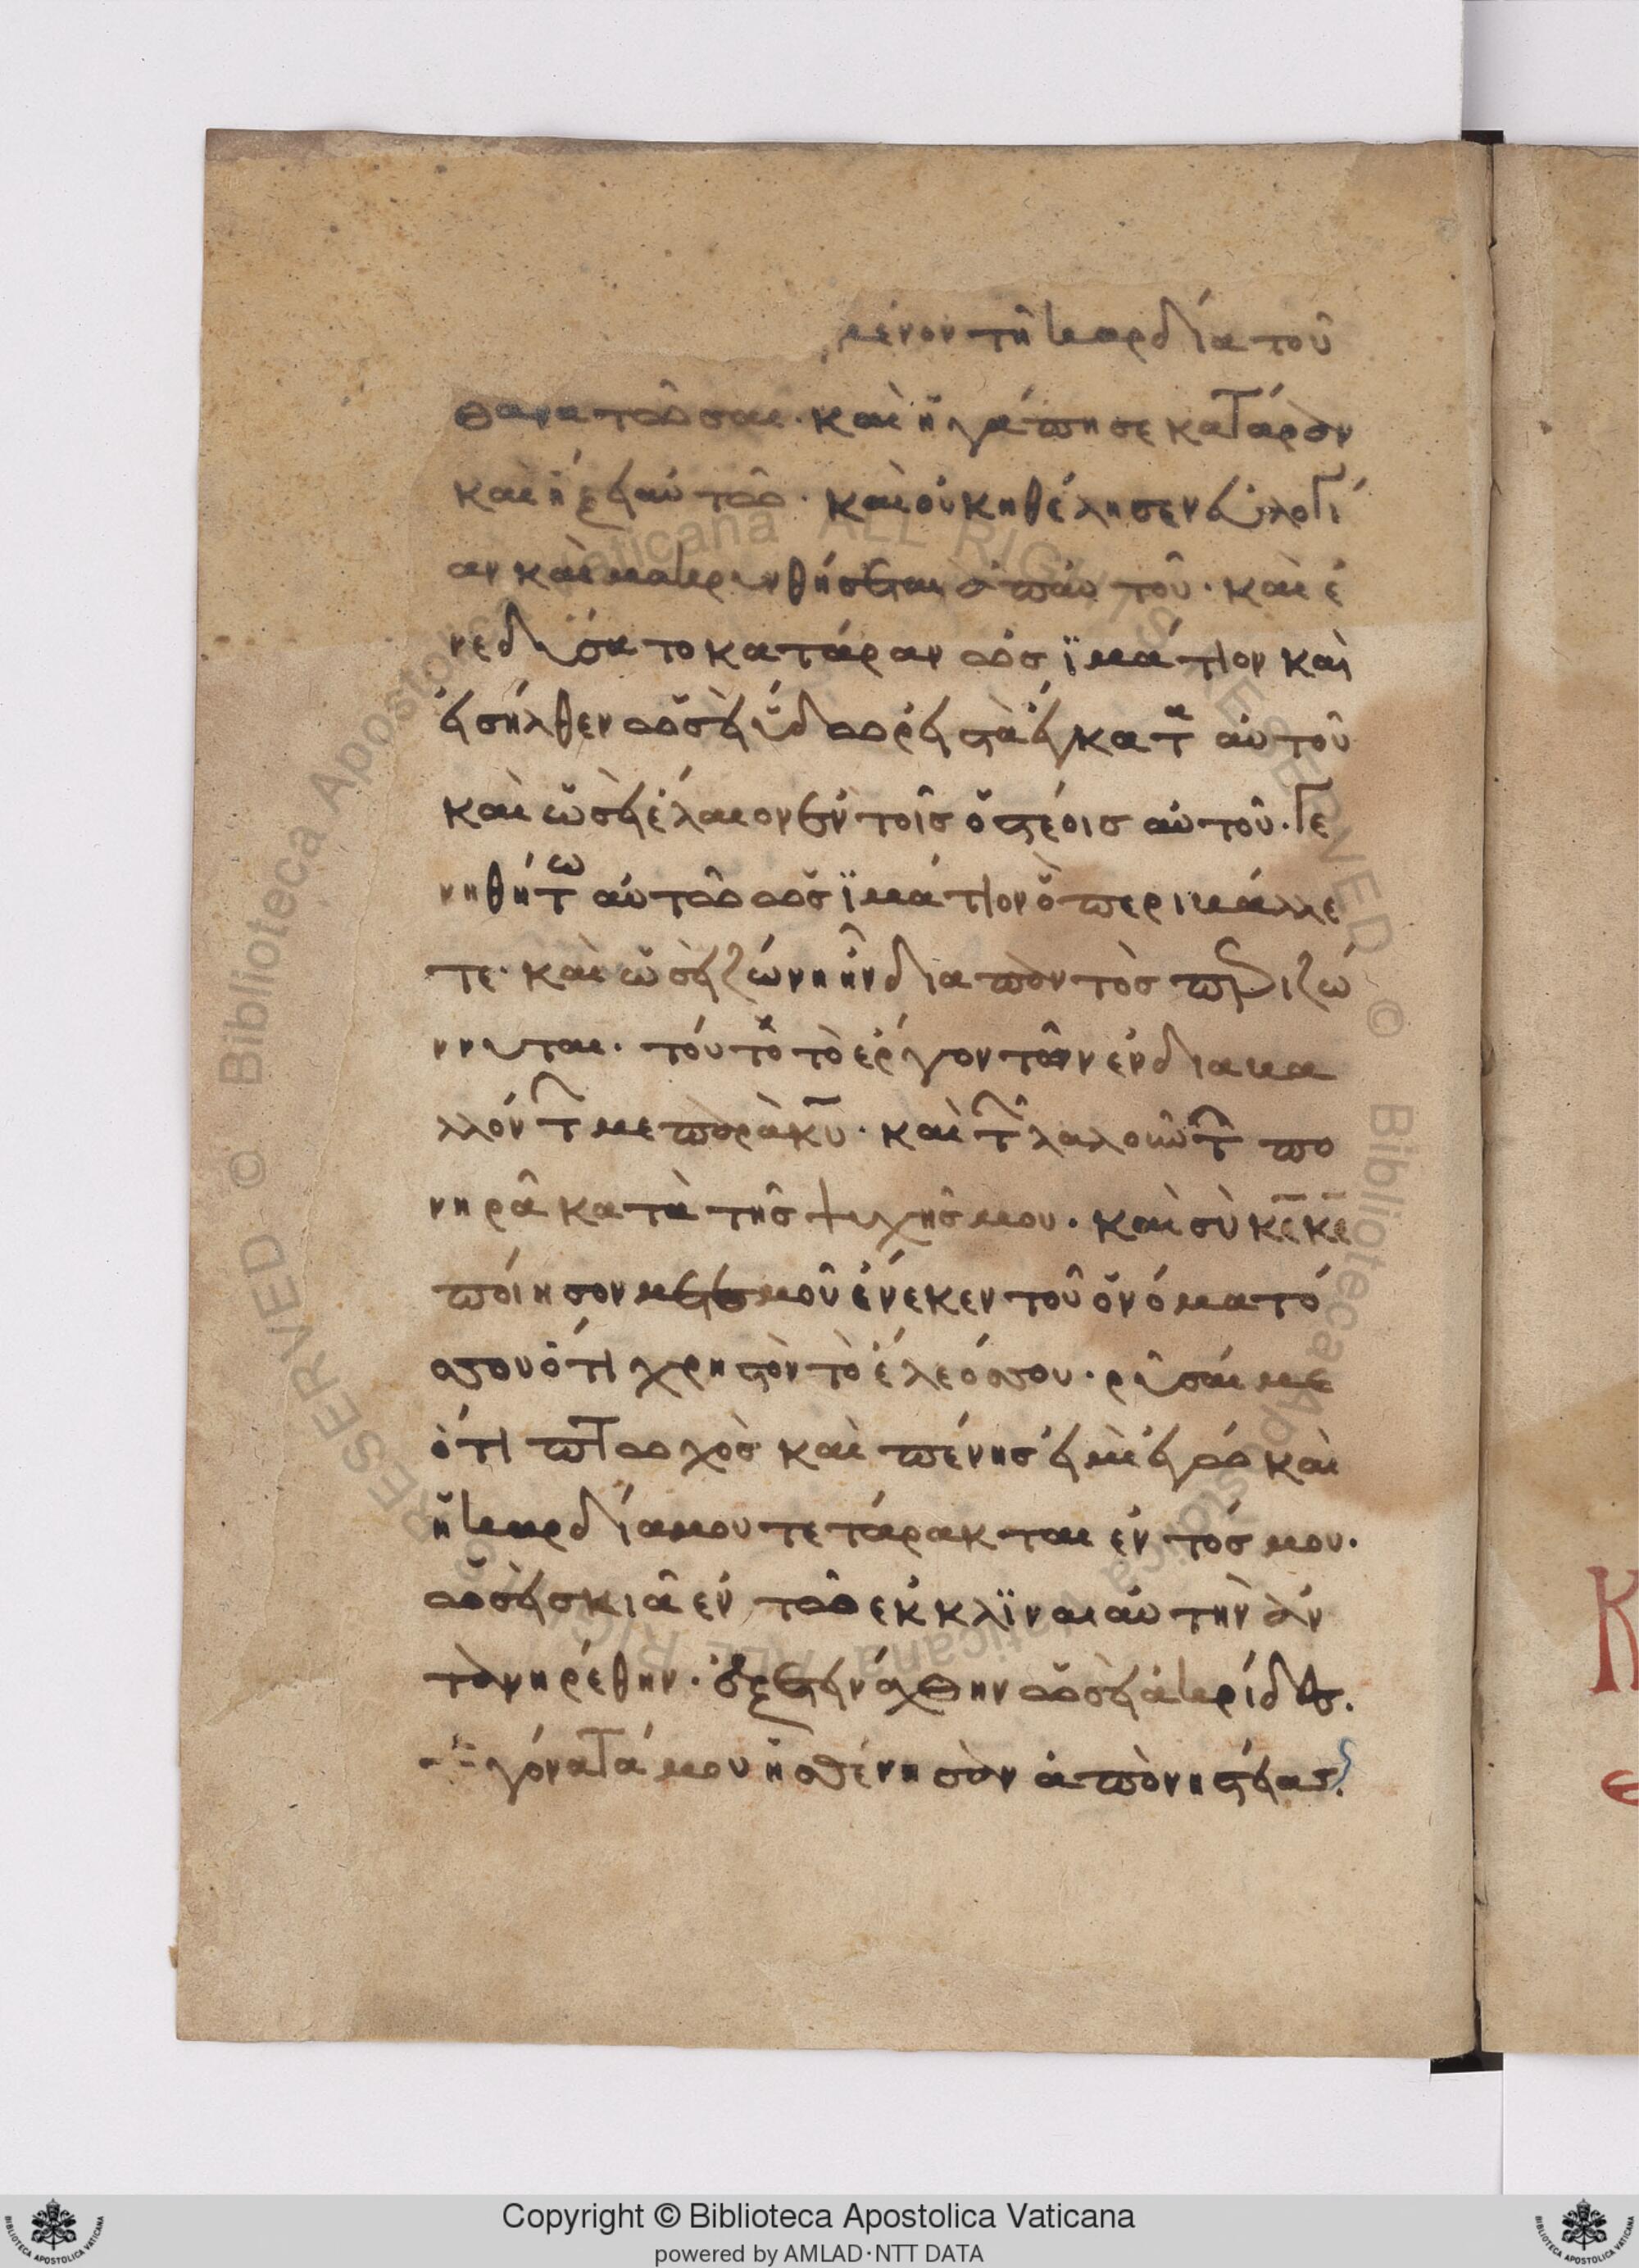 μένον τῆ καρδία τοῦ
θανατῶσαι· καὶ ἠγάπησε κατάραν
καὶ ἥξει αὐτῶ· καὶ οὐκ ἠθέλησεν εὐλογί
αν καὶ μακρυνθήσεται ἀπ αὐτοῦ· καὶ ἐ
νεδύσατο κατάραν ὡς ϊμάτιον καὶ
εἰσῆλθεν ὡσεὶ ὕδωρ εἰς τὰ ἔγκατα αὐτοῦ
καὶ ὡσεὶ ἔλαιον ἐν τοῖς ὀστέοις αὐτοῦ· Γε
νηθήτω αὐτῶ ὡς ϊμάτιον ὃ περιβάλλε
τε· καὶ ὡσεὶ ζώνη ἣν διαπαντὸς περιζώ
ννυται· τοῦτο τὸ ἔργον τῶν ἐνδιαβα
λλόντων με παρὰ κ̅υ̅· καὶ τῶν λαλούντων πο
νηρὰ κατὰ τῆς ψυχῆς μου· καὶ σὺ κ̅ε̅ κ̅ε̅
ποίησον μετ ἐμοῦ ἕνεκεν τοῦ ὀνόματό
σου ὅτι χρηστὸν τὸ ἔλεός σου· ρῦσαι με
ὅτι πτωχὸς καὶ πένης εἰμὶ ἐγὼ καὶ
ἡ καρδία μου τετάρακται ἐντός μου·
ὡσεὶ σκιὰ ἐν τῶ ἐκκλϊναι αὐτὴν ἀν
τανηρέθην· ἐξετινάχθην ὡσεὶ ἀκρίδες·
γόνατά μου ἠσθένησαν ἀπὸ νηστείας
Κ
Copyright © Biblioteca Apostolica Vaticana
powered by AMLAD·NTT DATA